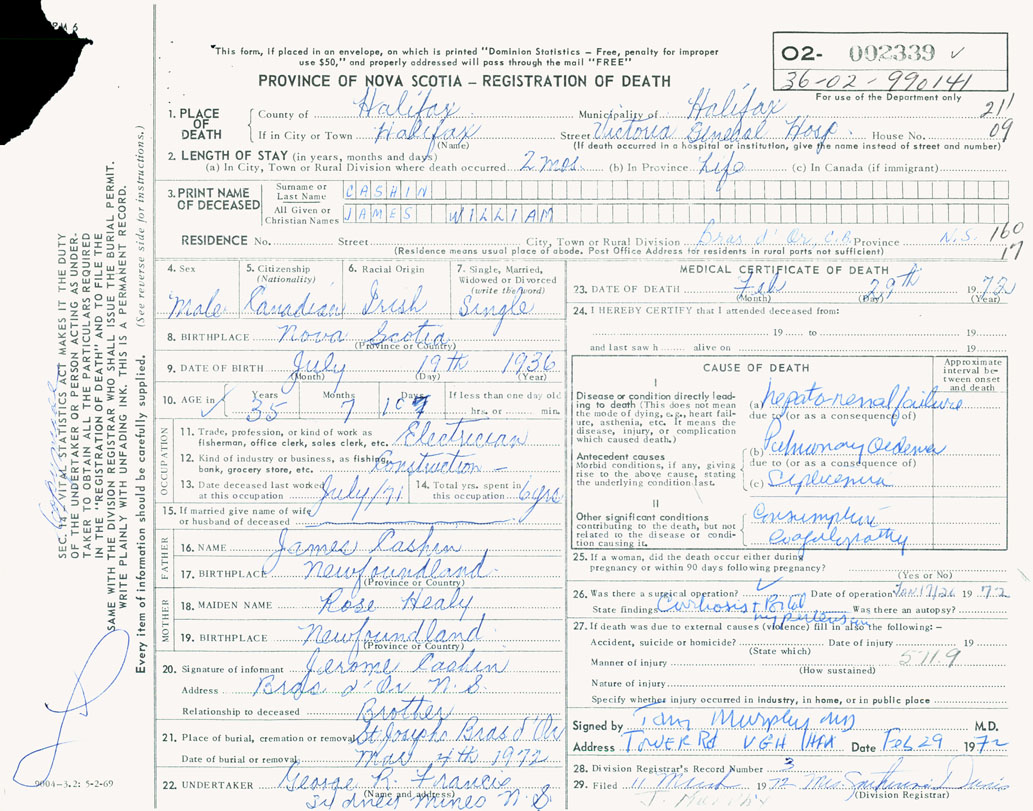 RM 6
"This form, if placed in an envelope, on which is printed "Dominion Statistics — Free, penalty for improper
use $50," and properly addressed will pass through the mail "FREE"
PROVINCE OF NOVA SCOTIA — REGISTRATION OF DEATH
O2- 002339 ✓
36-02-990141
For use of the Department only
211
09
1. PLACE OF DEATH
County of Halifax Municipality of Halifax
If in City or Town Halifax Street Victoria General Hosp. House No.
(Name) (If death occurred in a hospital or institution, give the name instead of street and number)
2. LENGTH OF STAY (in years, months and days)
(a) In City, Town or Rural Division where death occurred 2 mos. (b) In Province Life (c) In Canada (if immigrant)
3. PRINT NAME OF DECEASED
Surname or Last Name CASHIN
All Given or Christian Names JAMES WILLIAM
RESIDENCE No. Street City, Town or Rural Division Bras d'Or, C.B. Province N.S. 160
17
(Residence means usual place of abode. Post Office Address for residents in rural parts not sufficient)
4. Sex Male
5. Citizenship (Nationality) Canadian
6. Racial Origin Irish
7. Single, Married, Widowed or Divorced (write the word) Single
8. BIRTHPLACE Nova Scotia
(Province or Country)
9. DATE OF BIRTH July 19th 1936
(Month) (Day) (Year)
10. AGE in Years 35 Months 7 Days If less than one day old hrs. or min.
OCCUPATION
11. Trade, profession, or kind of work as fisherman, office clerk, sales clerk, etc. Electrician
12. Kind of industry or business, as fishing, bank, grocery store, etc. Construction —
13. Date deceased last worked at this occupation July/71
14. Total yrs. spent in this occupation 6 yrs
15. If married give name of wife or husband of deceased
FATHER
16. NAME James Cashin
17. BIRTHPLACE Newfoundland
(Province or Country)
MOTHER
18. MAIDEN NAME Rose Healy
19. BIRTHPLACE Newfoundland
(Province or Country)
20. Signature of informant Jerome Cashin
Address Bras d'Or N.S.
Relationship to deceased Brother
21. Place of burial, cremation or removal St Josephs Bras d'Or
Date of burial or removal Mar 4th 1972
22. UNDERTAKER George R. Francis
(Name and address)
Sydney Mines N.S.
MEDICAL CERTIFICATE OF DEATH
23. DATE OF DEATH Feb 29th 1972
(Month) (Day) (Year)
24. I HEREBY CERTIFY that I attended deceased from:
19 to 19
and last saw h alive on 19
CAUSE OF DEATH
Approximate interval between onset and death
I
Disease or condition directly leading to death (This does not mean the mode of dying, e.g., heart failure, asthenia, etc. It means the disease, injury, or complication which caused death.)
(a) hepato-renal failure
due to (or as a consequence of)
Antecedent causes
Morbid conditions, if any, giving rise to the above cause, stating the underlying condition last.
(b) Pulmonary Oedema
due to (or as a consequence of)
(c) Septicemia
II
Other significant conditions contributing to the death, but not related to the disease or condition causing it.
Consumptive
Coagulopathy
25. If a woman, did the death occur either during pregnancy or within 90 days following pregnancy?
(Yes or No)
26. Was there a surgical operation? ✓ Date of operation JAN 17/26 1972
State findings Cirrhosis + Portal hypertension Was there an autopsy?
27. If death was due to external causes (violence) fill in also the following: —
Accident, suicide or homicide? Date of injury 19
(State which)
571.9
Manner of injury
(How sustained)
Nature of injury
Specify whether injury occurred in industry, in home, or in public place
Signed by Tom Murphy MD M.D.
Address TOWER Rd VGH HFX Date Feb 29 1972
28. Division Registrar's Record Number 3
29. Filed 11 March 1972 Mrs
(Division Registrar)
SEC. 14 — VITAL STATISTICS ACT MAKES IT THE DUTY
OF THE UNDERTAKER OR PERSON ACTING AS UNDER-
TAKER TO OBTAIN ALL THE PARTICULARS REQUIRED
IN THE "REGISTRATION OF DEATH" AND TO FILE THE
SAME WITH THE DIVISION REGISTRAR WHO SHALL ISSUE THE BURIAL PERMIT.
WRITE PLAINLY WITH UNFADING INK. THIS IS A PERMANENT RECORD.
Every item of information should be carefully supplied. (See reverse side for instructions.)
9004-3.2: 5-2-69